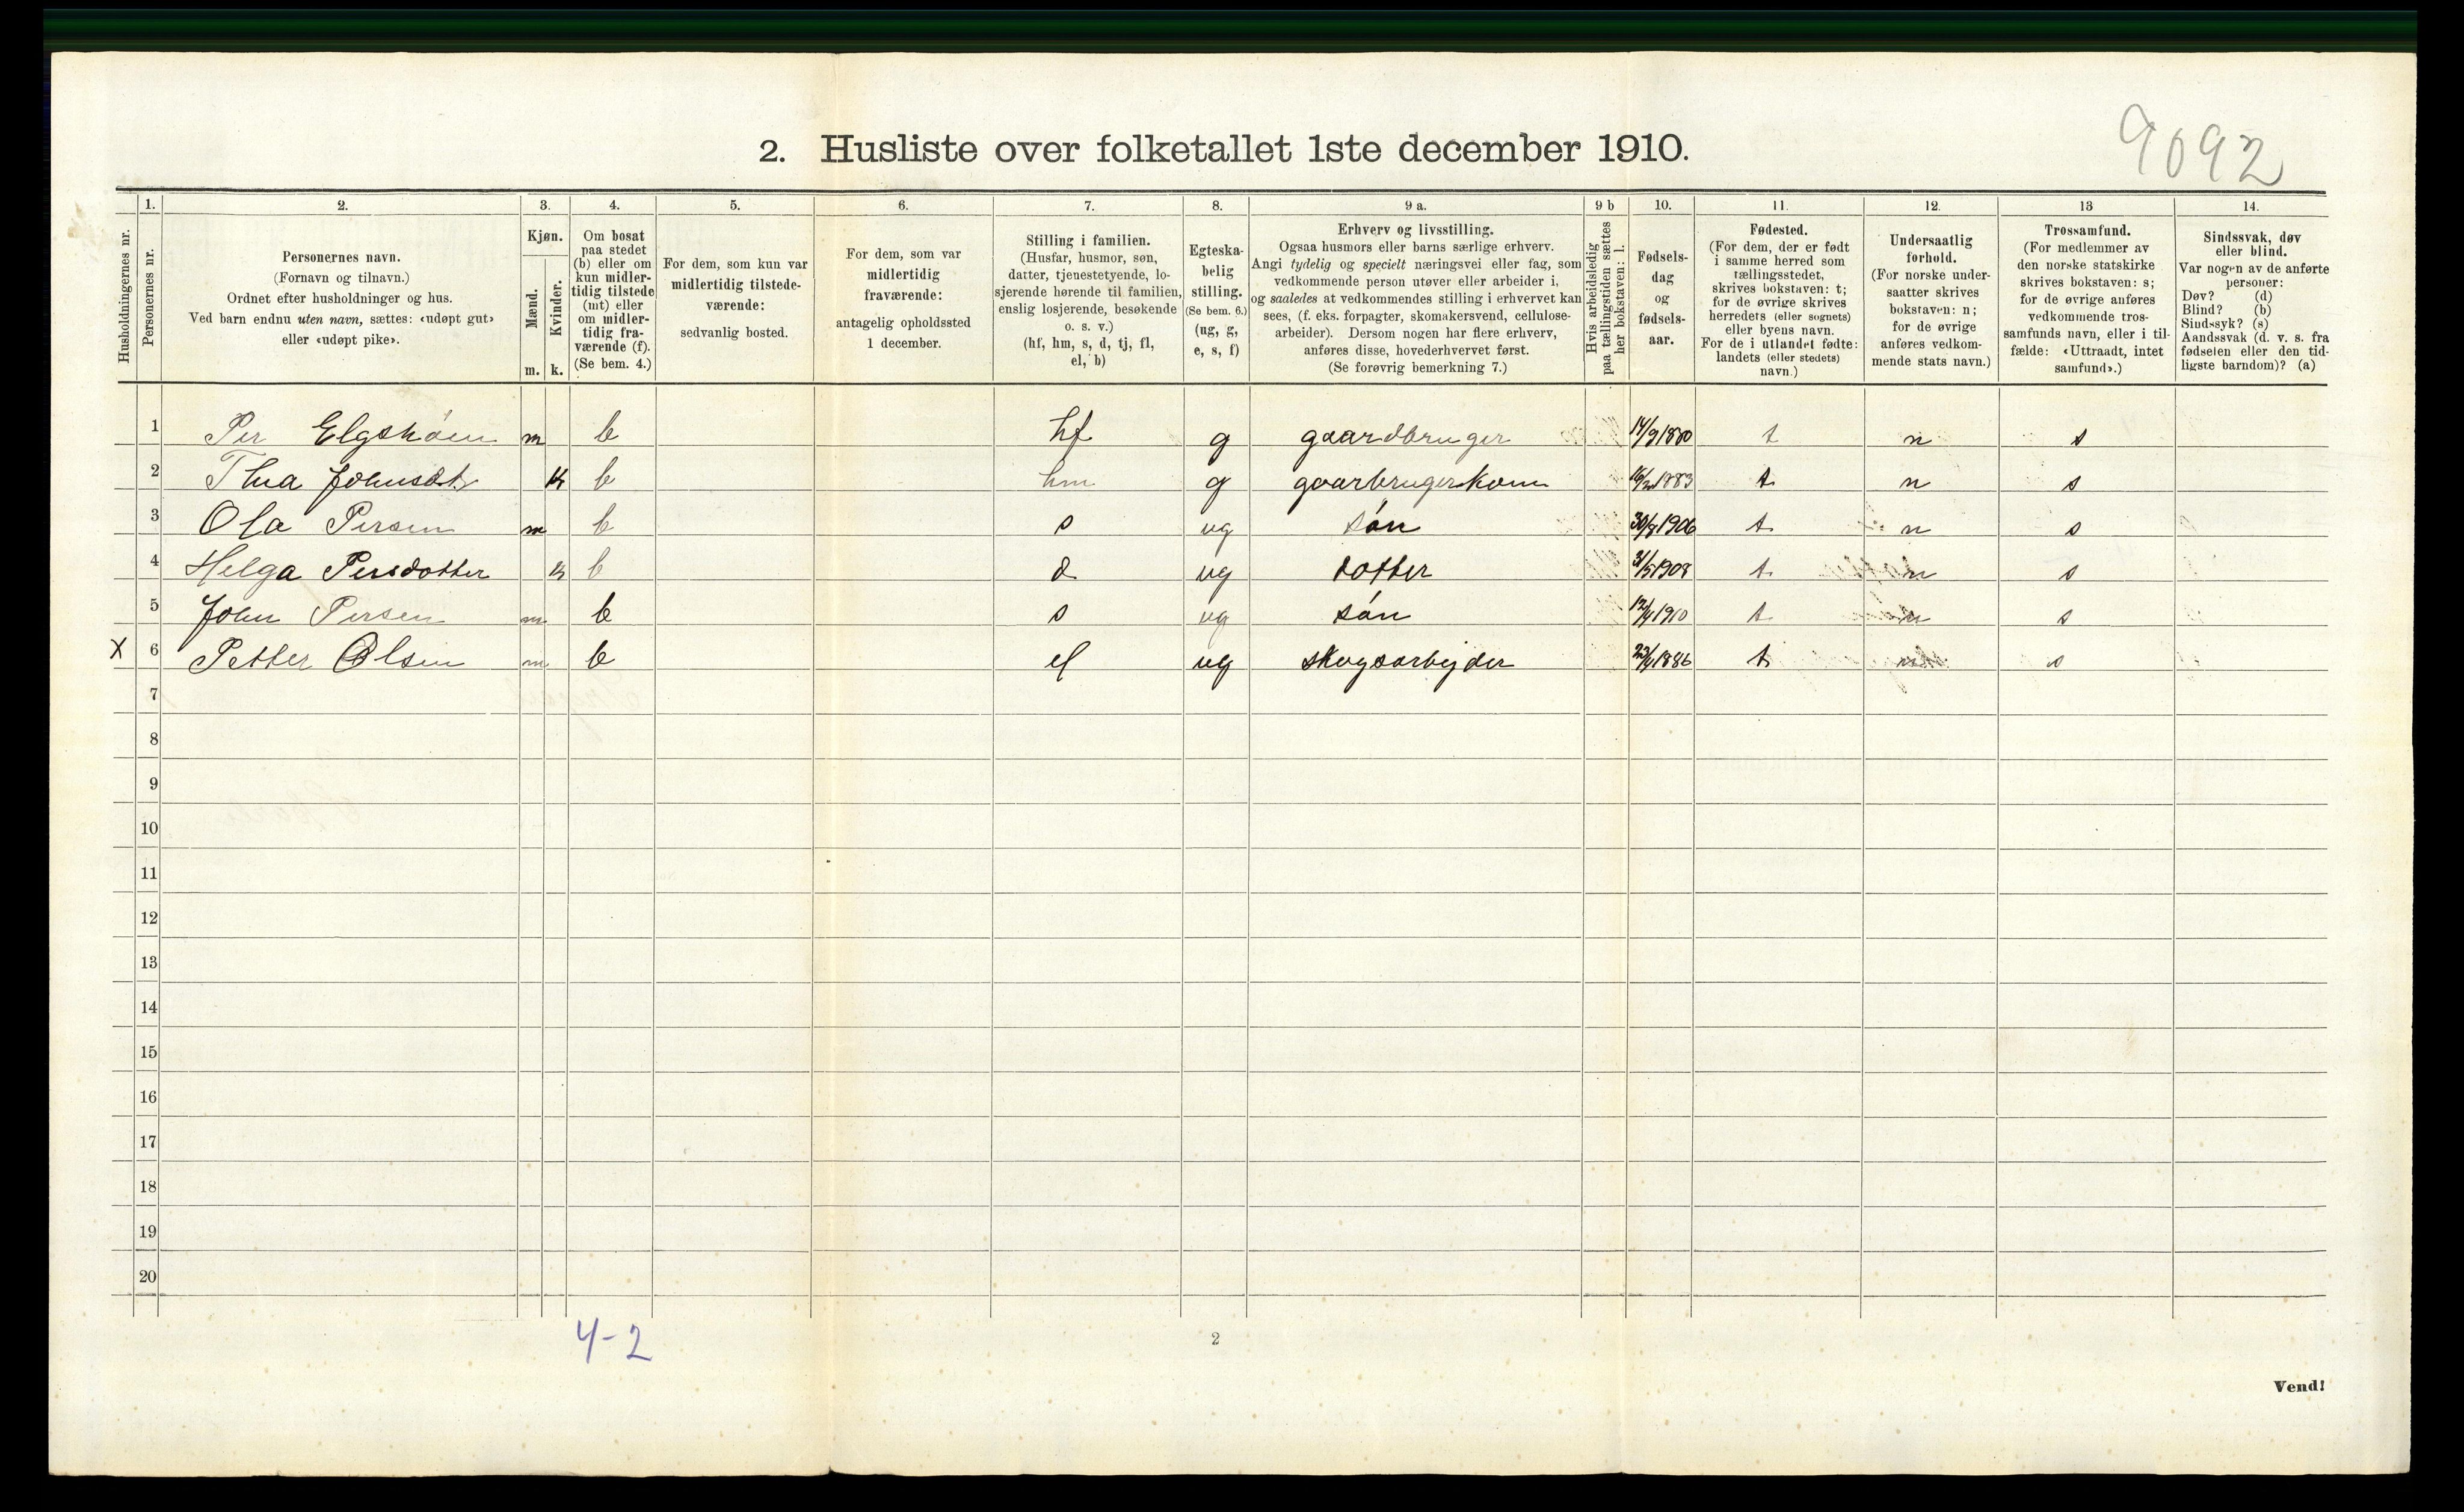 9092
2. Husliste over folketallet 1ste december 1910.
Husholdningernes nr.
1.
Personernes nr.
2.
Personernes navn.
(Fornavn og tilnavn.)
Ordnet efter husholdninger og hus.
Ved barn endnu uten navn, sættes: «udøpt gut»
eller «udøpt pike».
3.
Kjøn.
Mænd.
Kvinder.
m. k.
4.
Om bosat
paa stedet
(b) eller om
kun midler-
tidig tilstede
(mt) eller
om midler-
tidig fra-
værende (f).
(Se bem. 4.)
5.
For dem, som kun var
midlertidig tilstede-
værende:
sedvanlig bosted.
6.
For dem, som var
midlertidig
fraværende:
antagelig opholdssted
1 december.
7.
Stilling i familien.
(Husfar, husmor, søn,
datter, tjenestetyende, lo-
sjerende hørende til familien,
enslig losjerende, besøkende
o. s. v.)
(hf, hm, s, d, tj, fl,
el, b)
8.
Egteska-
belig
stilling.
(Se bem. 6.)
(ug, g,
e, s, f)
9 a.
Erhverv og livsstilling.
Ogsaa husmors eller barns særlige erhverv.
Angi tydelig og specielt næringsvei eller fag, som
vedkommende person utøver eller arbeider i,
og saaledes at vedkommendes stilling i erhvervet kan
sees, (f. eks. forpagter, skomakersvend, cellulose-
arbeider). Dersom nogen har flere erhverv,
anføres disse, hovederhvervet først.
(Se forøvrig bemerkning 7.)
9 b
Hvis arbeidsledig
paa tællingstiden sættes
her bokstaven: l.
10.
Fødsels-
dag
og
fødsels-
aar.
11.
Fødested.
(For dem, der er født
i samme herred som
tællingsstedet,
skrives bokstaven: t;
for de øvrige skrives
herredets (eller sognets)
eller byens navn.
For de i utlandet fødte:
landets (eller stedets)
navn.)
12.
Undersaatlig
forhold.
(For norske under-
saatter skrives
bokstaven: n;
for de øvrige
anføres vedkom-
mende stats navn.)
13
Trossamfund.
(For medlemmer av
den norske statskirke
skrives bokstaven: s;
for de øvrige anføres
vedkommende tros-
samfunds navn, eller i til-
fælde: «Uttraadt, intet
samfund».)
14.
Sindssvak, døv
eller blind.
Var nogen av de anførte
personer:
Døv? (d)
Blind? (b)
Sindssyk? (s)
Aandssvak (d. v. s. fra
fødselen eller den tid-
ligste barndom)? (a)
1 Per Elgshøen m b hf g gaardbruger 14/9 1880 t n s
2 Thea Johnsdt. k b hm g gaarbrugerkone 1883 t n s
3 Ola Persen m b s ug søn 30/8 1906 t n s
4 Helga Persdotter k b d ug dotter 31/5 1908 t n s
5 John Persen m b s ug søn 12/4 1910 t n s
X 6 Petter Olsen m b el ug skogsarbejder 23/4 1886 t n s
7
8
9
10
11
12
13
14
15
16
17
18
19
20
4-2
2
Vend!